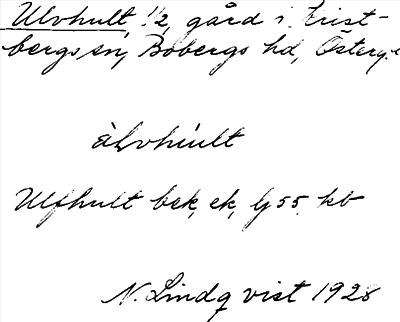 Ulvhult, 1/2, gård i Krist-
bergs sn, Bobergs hd, Österg.
Ulfhult bek, ek, lj 55 kb
N. Lindqvist 1928